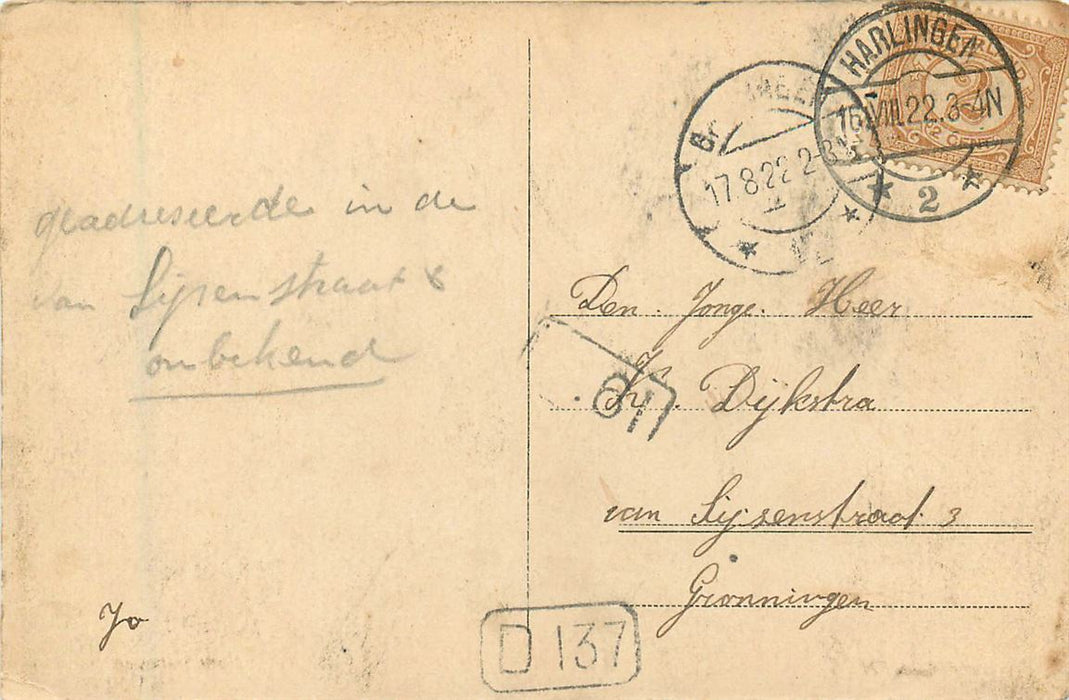 HARLINGEN
16.VIII.22.3-4N
2
17.8.22 2-3
geadreseerde in de
van Sijsenstraat 8
onbekend
Den. Jonge. Heer
K. Dijkstra
van Sijsenstraat 3
Gronningen
Jo
D 137